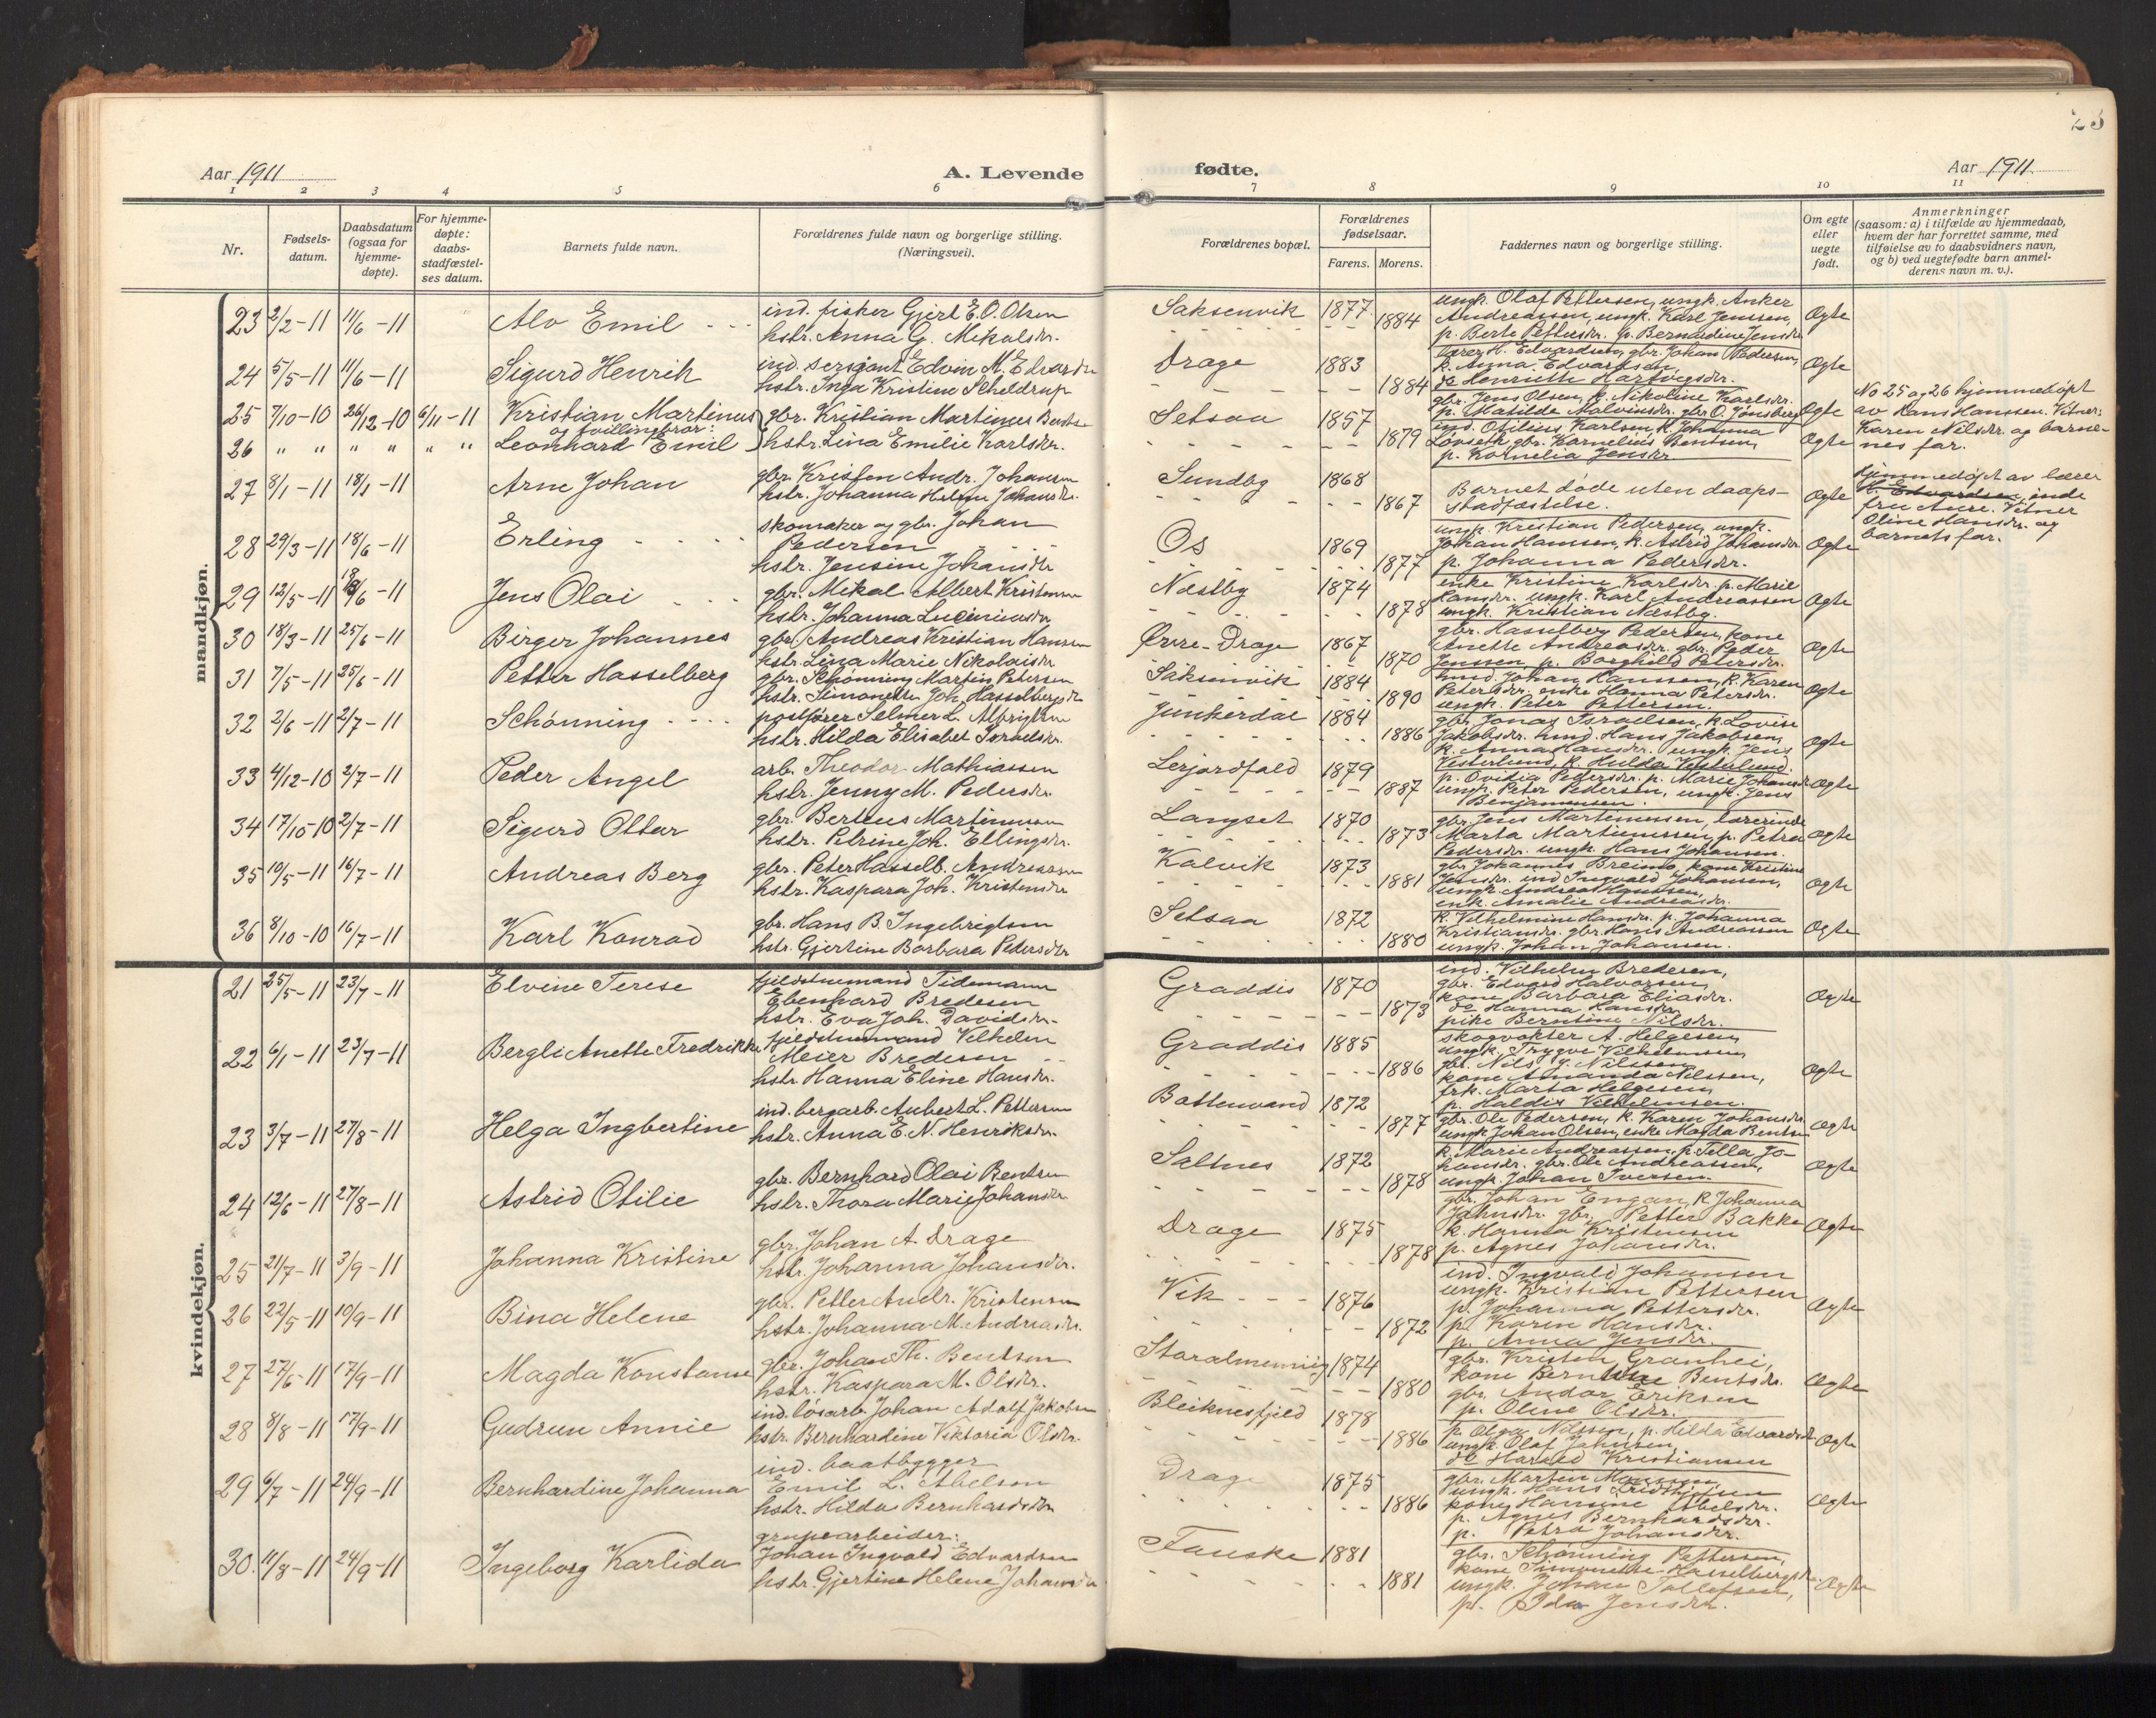 Aar 1911
A. Levende
fødte.
Aar 1911
1 2 3 4 5 6 7 8 9 10 11
Nr.
Fødsels-
datum.
Daabsdatum
(ogsaa for
hjemme-
døpte).
For hjemme-
døpte:
daabs-
stadfæstel-
ses datum.
Barnets fulde navn.
Forældrenes fulde navn og borgerlige stilling.
(Næringsvei).
Forældrenes bopæl.
Forældrenes
fødselsaar.
Farens. Morens.
Faddernes navn og borgerlige stilling.
Om egte
eller
uegte
født.
Anmerkninger
(saasom: a) i tilfælde av hjemmedaab,
hvem der har forrettet samme, med
tilføielse av to daabsvidners navn,
og b) ved uegtefødte barn anmel-
derens navn m. v.).
mandkjøn.
23 2/2-11 11/6-11 Alv Emil
ind. fisker Gjert E. O. Olsen
hstr. Anna G. Mikalsdr.
Saksenvik 1877 1884
ungk. Olaf Pettersen, ungk. Anker
Andreassen, ungk. Karl Jenssen,
p. Berte Pettersdr. p. Bernardine Jensdr.
Ægte
24 5/5-11 11/6-11 Sigurd Henrik
ind. sersjant Edvin M. Edvardsen
hstr. Inga Kristine Scheldrup
Drage 1883 1884
lærer H. Edvardsen, gbr. Johan Pedersen,
k. Anna Edvardsen,
de Henriette Hartvigsdr.
Ægte
25 7/10-10 26/12-10 6/11-11 Kristian Martinus
og tvillingbror:
26 " " " " " " Leonhard Emil
gbr. Kristian Martinus Bentsen
hstr. Lina Emilie Karlsdr.
Setsaa 1857 1879
gbr. Jens Olsen, k. Nikoline Karlsdr.
p. Matilde Malvinsdr. gbr. O. Jønsberg
ind. Otilius Karlsen, k. Johanna
Løvseth gbr. Kornelius Bentsen,
p. Kornelia Jensdr.
Ægte
Ægte
No 25 og 26 hjemmedøpt
av Hans Hanssen. Vitner:
Karen Nilsdr. og barne-
nes far.
27 8/1-11 18/1-11 Arne Johan
gbr. Kristen Andr. Johansen
hstr. Johanna Helene Johansdr.
Sundby 1868 1867
Barnet døde uten daaps-
stadfæstelse.
Ægte
Hjemmedøpt av lærer
H. Edvardsen, inde
fru Aure. Vitner
Oline Hansdr. og
barnets far.
28 29/3-11 18/6-11 Erling
skomaker og gbr. Johan
Pedersen
hstr. Jensine Johansdr.
Os 1869 1877
ungk. Kristian Pedersen, ungk.
Johan Hansen, k. Astrid Johansdr.
p. Johanna Pedersdr.
Ægte
29 12/5-11 18/6-11 Jens Olai
gbr. Mikal Albert Kristensen
hstr. Johanna
Næstby 1874 1878
enke Kristine Karlsdr. p. Marie
Hansdr. ungk. Karl Andreassen
ungk. Kristian Næstby.
Ægte
30 18/3-11 25/6-11 Birger Johannes
gbr. Andreas Kristian Hansen
hstr. Lina Marie Nikolaisdr.
Øvre-Drage 1867 1870
gbr. Hasselberg Pedersen, kone
Anette Andreasdr. gbr. Peder
Jenssen, p. Borghild Petersdr.
Ægte
31 7/5-11 25/6-11 Petter Hasselberg
gbr. Schønning Martin Petersen
hstr. Simonette Joh. Hasselbergsdr.
Saksenvik 1884 1890
hmd. Johan Hanssen, k. Karen
Petersdr. enke Hanna Petersdr.
ungk. Peter Pettersen.
Ægte
32 2/6-11 2/7-11 Schønning
postfører Selmer L. Albrigtsen
hstr. Hilda Elisabet Israelsdr.
Junkerdal 1884 1886
gbr. Jonas Israelsen, k. Lovise
Jakobsdr. hmd. Hans Jakobsen,
k. Anna Hansdr. ungk. Jens
Vesterlund, k. Hulda Vesterlund.
Ægte
33 4/12-10 2/7-11 Peder Angel
arb. Theodor Mathiassen
hstr. Jenny M. Pedersdr.
Lerjordfald 1879 1887
p. Ovidia Pedersdr. p. Marie Johansdr.
ungk. Peter Pedersen, ungk. Jens
Benjaminsen.
Ægte
34 17/10-10 2/7-11 Sigurd Ottar
gbr. Berteus Martinussen
hstr. Petrine Joh. Ellingsdr.
Langset 1870 1873
gbr. Jens Martinussen, lærerinde
Marta Martinussen, p. Petra
Pedersdr. ungk. Hans Johansen.
Ægte
35 10/5-11 16/7-11 Andreas Berg
gbr. Peter Hasselb. Andreassen
hstr. Kaspara Joh. Kristensdr.
Kalvik 1873 1881
gbr. Johannes Breimo, kone Kristine
Jensdr. ind. Ingvald Johansen,
ungk. Andreas Hanssen,
enk. Amalie Andreasdr.
Ægte
36 8/10-10 16/7-11 Karl Konrad
gbr. Hans B. Ingebrigtsen
hstr. Gjertine Barbara Pedersdr.
Setsaa 1872 1880
k. Vilhelmine Hansdr. p. Johanna
Kristiansdr. gbr. Hans Andreassen
ungk. Johan Johansen.
Ægte
kvindekjøn.
21 25/5-11 23/7-11 Elvine Terese
fjeldstuemand Tidemann
Ebenhard Bredesen
hstr. Eva Joh. Davidsdr.
Graddis 1870 1873
ind. Vilhelm Bredesen,
gbr. Edvard Halvorsen,
kone Barbara Eliasdr.
de Hanna Hansdr.
pike Berntine Nilsdr.
Ægte
22 6/1-11 23/7-11 Bergli Anette Fredrikke
fjeldstuemand Vilhelm
Meier Bredesen
hstr. Hanna Eline Hansdr.
Graddis 1885 1886
skogvokter A. Helgesen,
ungk. Trygve Vilhelmsen,
gbr. Nils J. Nilssen
kone Amanda Nilssen,
frk. Marta Helgesen,
p. Haldis Vilhelmsen.
Ægte
23 3/7-11 27/8-11 Helga Ingbertine
ind. bergarb. Aubert L. Pettersen
hstr. Anna E. N. Henriksdr.
Bottenvand 1872 1877
gbr. Ole Pedersen, k. Karen Johansdr.
ungk. Johan Olsen, enke Magda Bentsen
Ægte
24 12/6-11 27/8-11 Astrid Otilie
gbr. Bernhard Olai Bentsen
hstr. Thora Marie Johansdr.
Saltnes 1872 1878
k. Marie Andreassen, p. Tella Jo-
hansdr. gbr. Ole Andreassen,
ungk. Johan Iversen.
Ægte
25 21/7-11 3/9-11 Johanna Kristine
gbr. Johan A. Drage
hstr. Johanna Johansdr.
Drage 1875 1878
gbr. Johan Engan, k. Johanna
Jahnsdr. gbr. Petter Bakke
k. Hanna Kristensen
p. Agnes Johansdr.
Ægte
26 22/5-11 10/9-11 Bina Helene
gbr. Petter Andr. Kristensen
hstr. Johanna M. Andreasdr.
Vik 1876 1872
ind. Ingvald Johansen
ungk. Kristian Pettersen
p. Johanna Pettersdr.
p. Karen Hansdr.
p. Anna Jensdr.
Ægte
27 27/6-11 17/9-11 Magda Konstanse
gbr. Johan Th. Bentsen
hstr. Kaspara M. Olsdr.
Storalmenning 1874 1880
gbr. Kristen Granhei,
kone Berntine Bentsdr.
gbr. Andor Eriksen
p. Oline Olsdr.
Ægte
28 8/8-11 17/9-11 Gudrun Annie
ind. løsarb. Johan Adolf Jakobsen
hstr. Bernhardine Viktoria Olsdr.
Bleiknesfjeld 1878 1886
p. Olga Nilssen, p. Hilda Edvardsdr.
ungk. Olaf Johnsen,
de Harald Kristiansen
Ægte
29 6/7-11 24/9-11 Bernhardine Johanna
ind. baatbygger
Emil L. Abelsen
hstr. Hilda Bernhardsdr.
Drage 1875 1886
gbr. Marten Monssen
ungk. Hans Kristensen
kone Hansine Abelsdr.
p. Agnes Bernhardsdr.
p. Petra Johansdr.
Ægte
30. 11/8-11 24/9-11 Ingeborg Karlida
grupearbeider:
Johan Ingvald Edvardsen
hstr. Gjertine Helene Johansdr.
Fauske 1881 1881
gbr. Schønning Pettersen,
kone Simonette Hasselbergsdr.
ungk. Johan Tollefsen,
p. Ida Jensdr.
Ægte